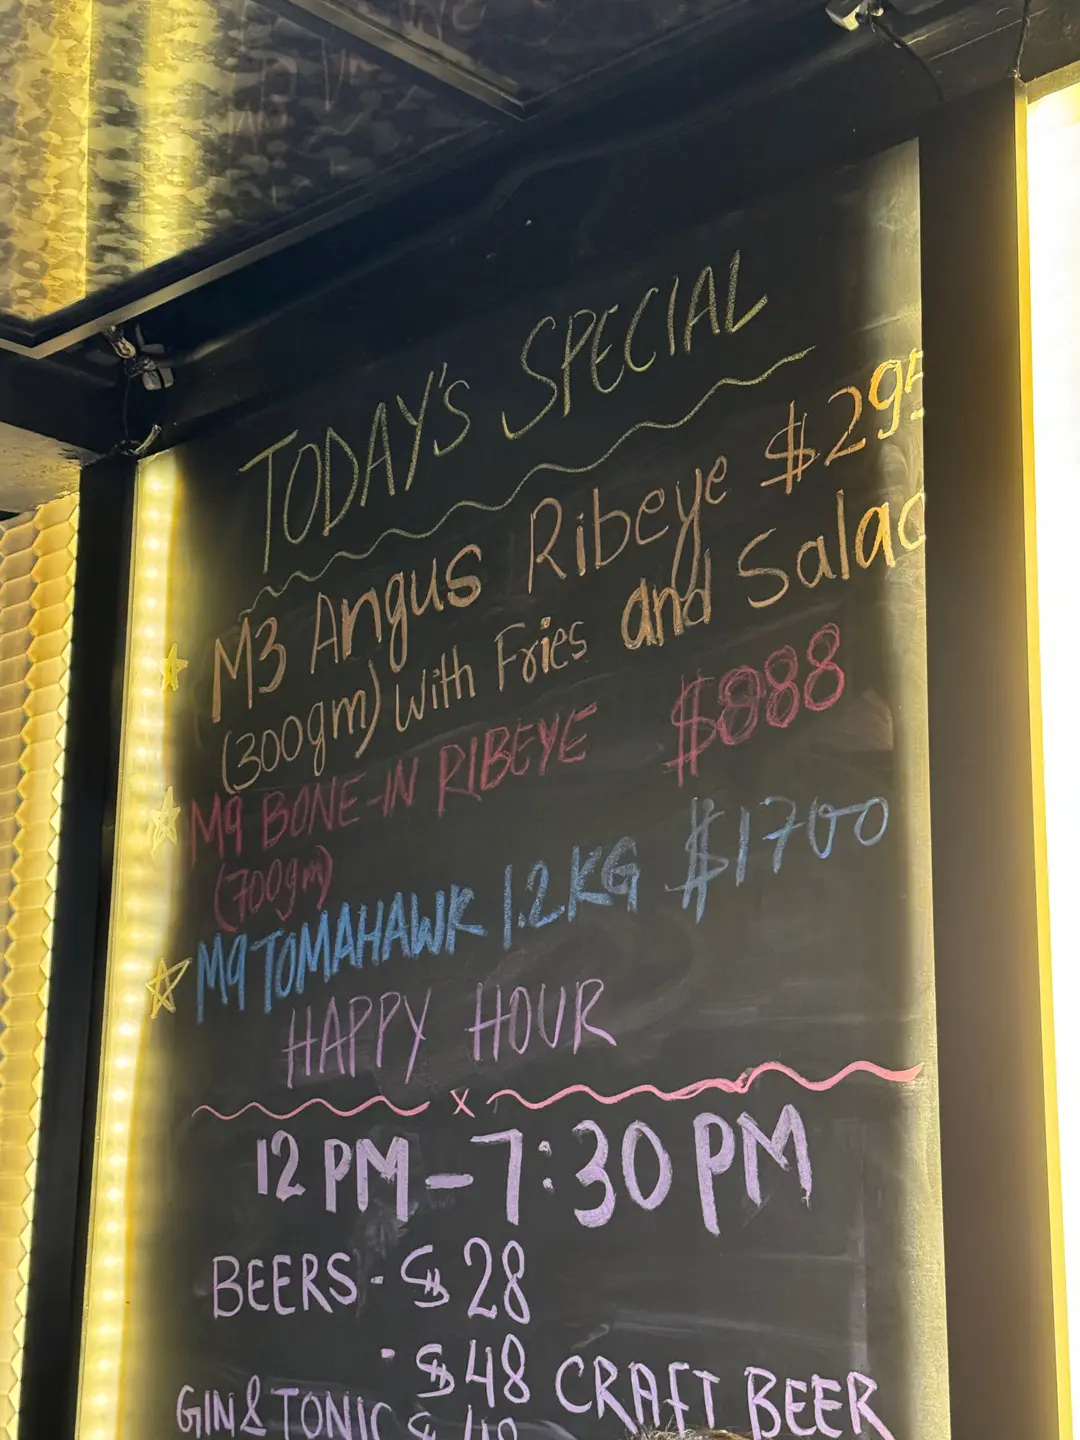 TODAY'S SPECIAL
M3 Angus Ribeye $295
(300gm) With Fries and Salad
M9 BONE-IN RIBEYE $888
(700gm)
M9 TOMAHAWK 1.2KG $1700
HAPPY HOUR
x
12 PM - 7:30 PM
BEERS - $28
- $48 CRAFT BEER
GIN & TONIC $48